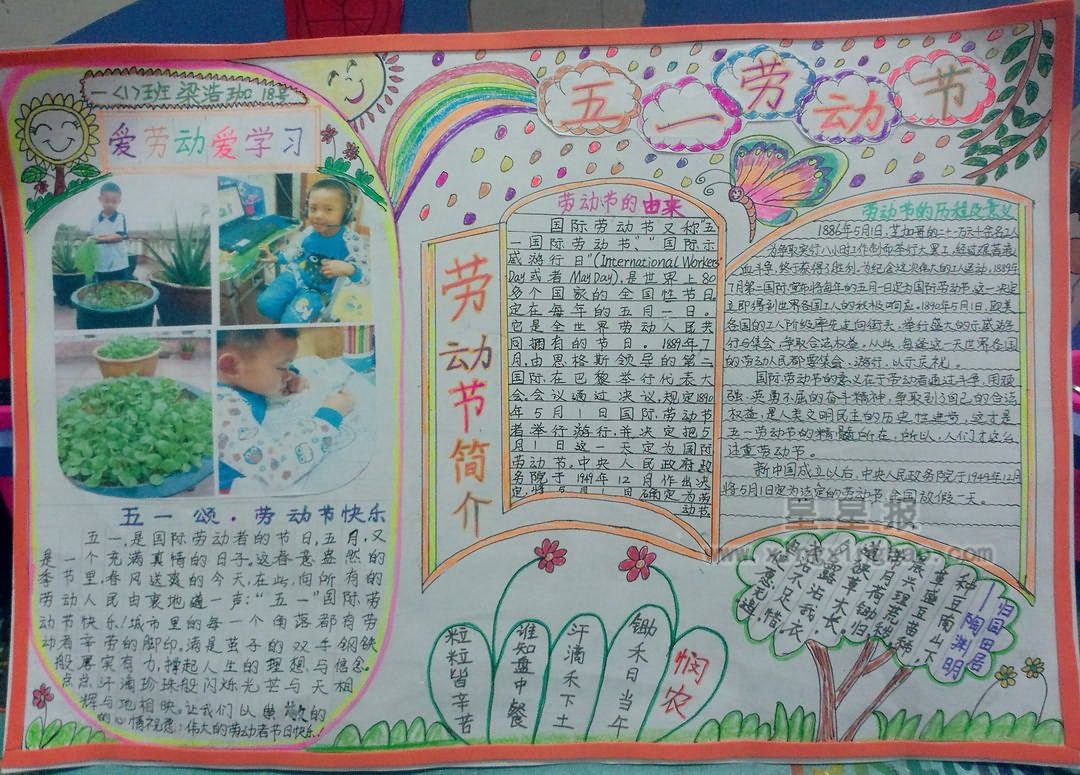 一<1>班梁浩珈 18号
爱劳动爱学习
五一颂·劳动节快乐
五一,是国际劳动者的节日,五月,又
是一个充满真情的日子。这春意盎然的
季节里,春风送爽的今天,在此,向所有的
劳动人民由衷地道一声:“五一”国际劳
动节快乐!城市里的每一个角落都有劳
动者辛劳的脚印。满是茧子的双手钢铁
般黑实有力,撑起人生的理想与信念。
点点汗滴珍珠般闪烁光芒与天相
辉与地相映。让我们以
的心情祝愿:伟大的劳动者节日快乐!
五一劳动节
劳动节简介
劳动节的由来
国际劳动节又称“五
一国际劳动节”“国际示
威游行日”(International Workers'
Day或者May Day),是世界上80
多个国家的全国性节日。
定在每年的五月一日。
它是全世界劳动人民共
同拥有的节日。1889年7
月,由恩格斯领导的第二
国际在巴黎举行代表大
会。会议通过决议,规定1890
年5月1日国际劳动节
者举行游行,并决定把5
月1日这一天定为国际
劳动节。中央人民政府政
务院于1949年12月作出决
定,将5月1日确定为劳
动节。
劳动节的历程及意义
1886年5月1日,芝加哥的二十一万六千余名工人
为争取实行八小时工作制而举行大罢工,经过艰苦的
流血斗争,终于获得了胜利。为纪念这次伟大的工人运动,1889年
7月第二国际宣布将每年的五月一日定为国际劳动节。这一决定
立即得到世界各国工人的积极响应。1890年5月1日,欧美
各国的工人阶级率先走向街头,举行盛大的示威游
行与集会,争取合法权益。从此,每逢这一天世界各国
的劳动人民都要集会、游行,以示庆祝。
国际劳动节的意义在于劳动者通过斗争,用顽
强、英勇不屈的奋斗精神,争取到了自己的合法
权益,是人类文明民主的历史性进步,这才是
五一劳动节的精髓所在。所以,人们才这么
注重劳动节。
新中国成立以后,中央人民政务院于1949年12月
将5月1日定为法定的劳动节,全国放假一天。
悯农
锄禾日当午
汗滴禾下土
谁知盘中餐
粒粒皆辛苦
归园田居
——陶渊明
种豆南山下
草盛豆苗稀,
晨兴理荒秽,
带月荷锄归
道狭草木长,
夕露沾我衣
衣沾不足惜,
但使愿无违。
星星报